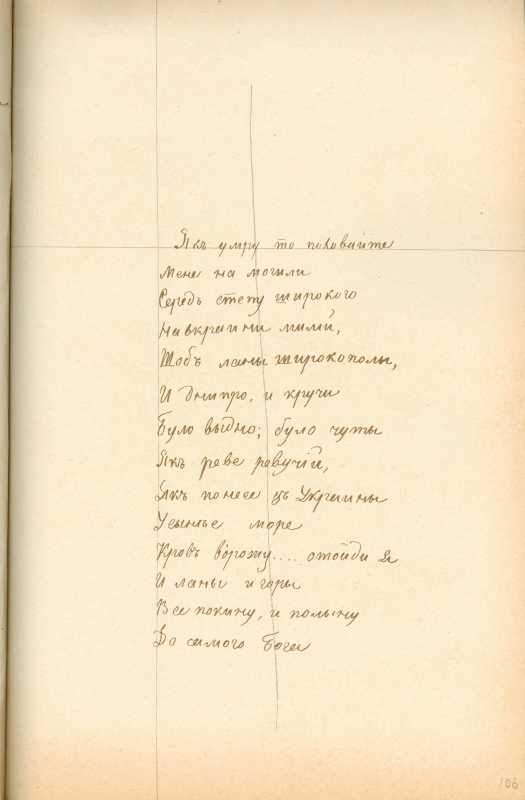 Якъ умру то поховайте
Мене на могили
Середъ степу широкого
На вкраини милій,
Щобъ ланы широкополы,
И Днипро, и кручи
Було выдно; було чуты
Якъ реве ревучій,
Якъ понесе зъ Украины
У сынье море
Кровъ ворожу.... отойди я
И ланы и горы
Все покину, и полыну
До самого Бога
106